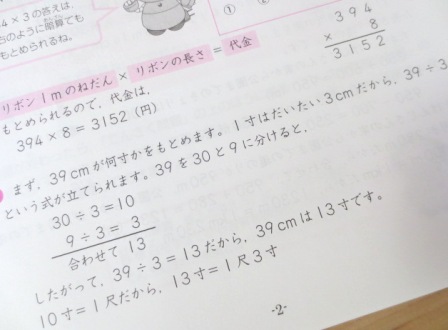 94×3の答えは,
うのように暗算でも
もとめられるね。
①
リボン1mのねだん × リボンの長さ = 代金
もとめられるので,代金は,
394×8=3152(円)
394
× 8
3152
まず,39cmが何寸かをもとめます。1寸はだいたい3cmだから,39÷3
という式が立てられます。39を30と9に分けると,
30÷3=10
9÷3= 3
合わせて 13
したがって,39÷3=13だから,39cmは13寸です。
10寸=1尺だから,13寸=1尺3寸
-2-